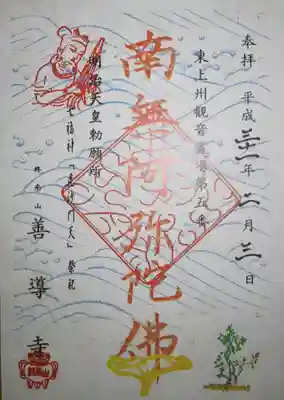 奉拝 平成三十一年二月三日
東上州観音霊場第五番
南無阿弥陀佛
明治天皇勅願所
七福神 毘沙門天 祭祀
善導寺